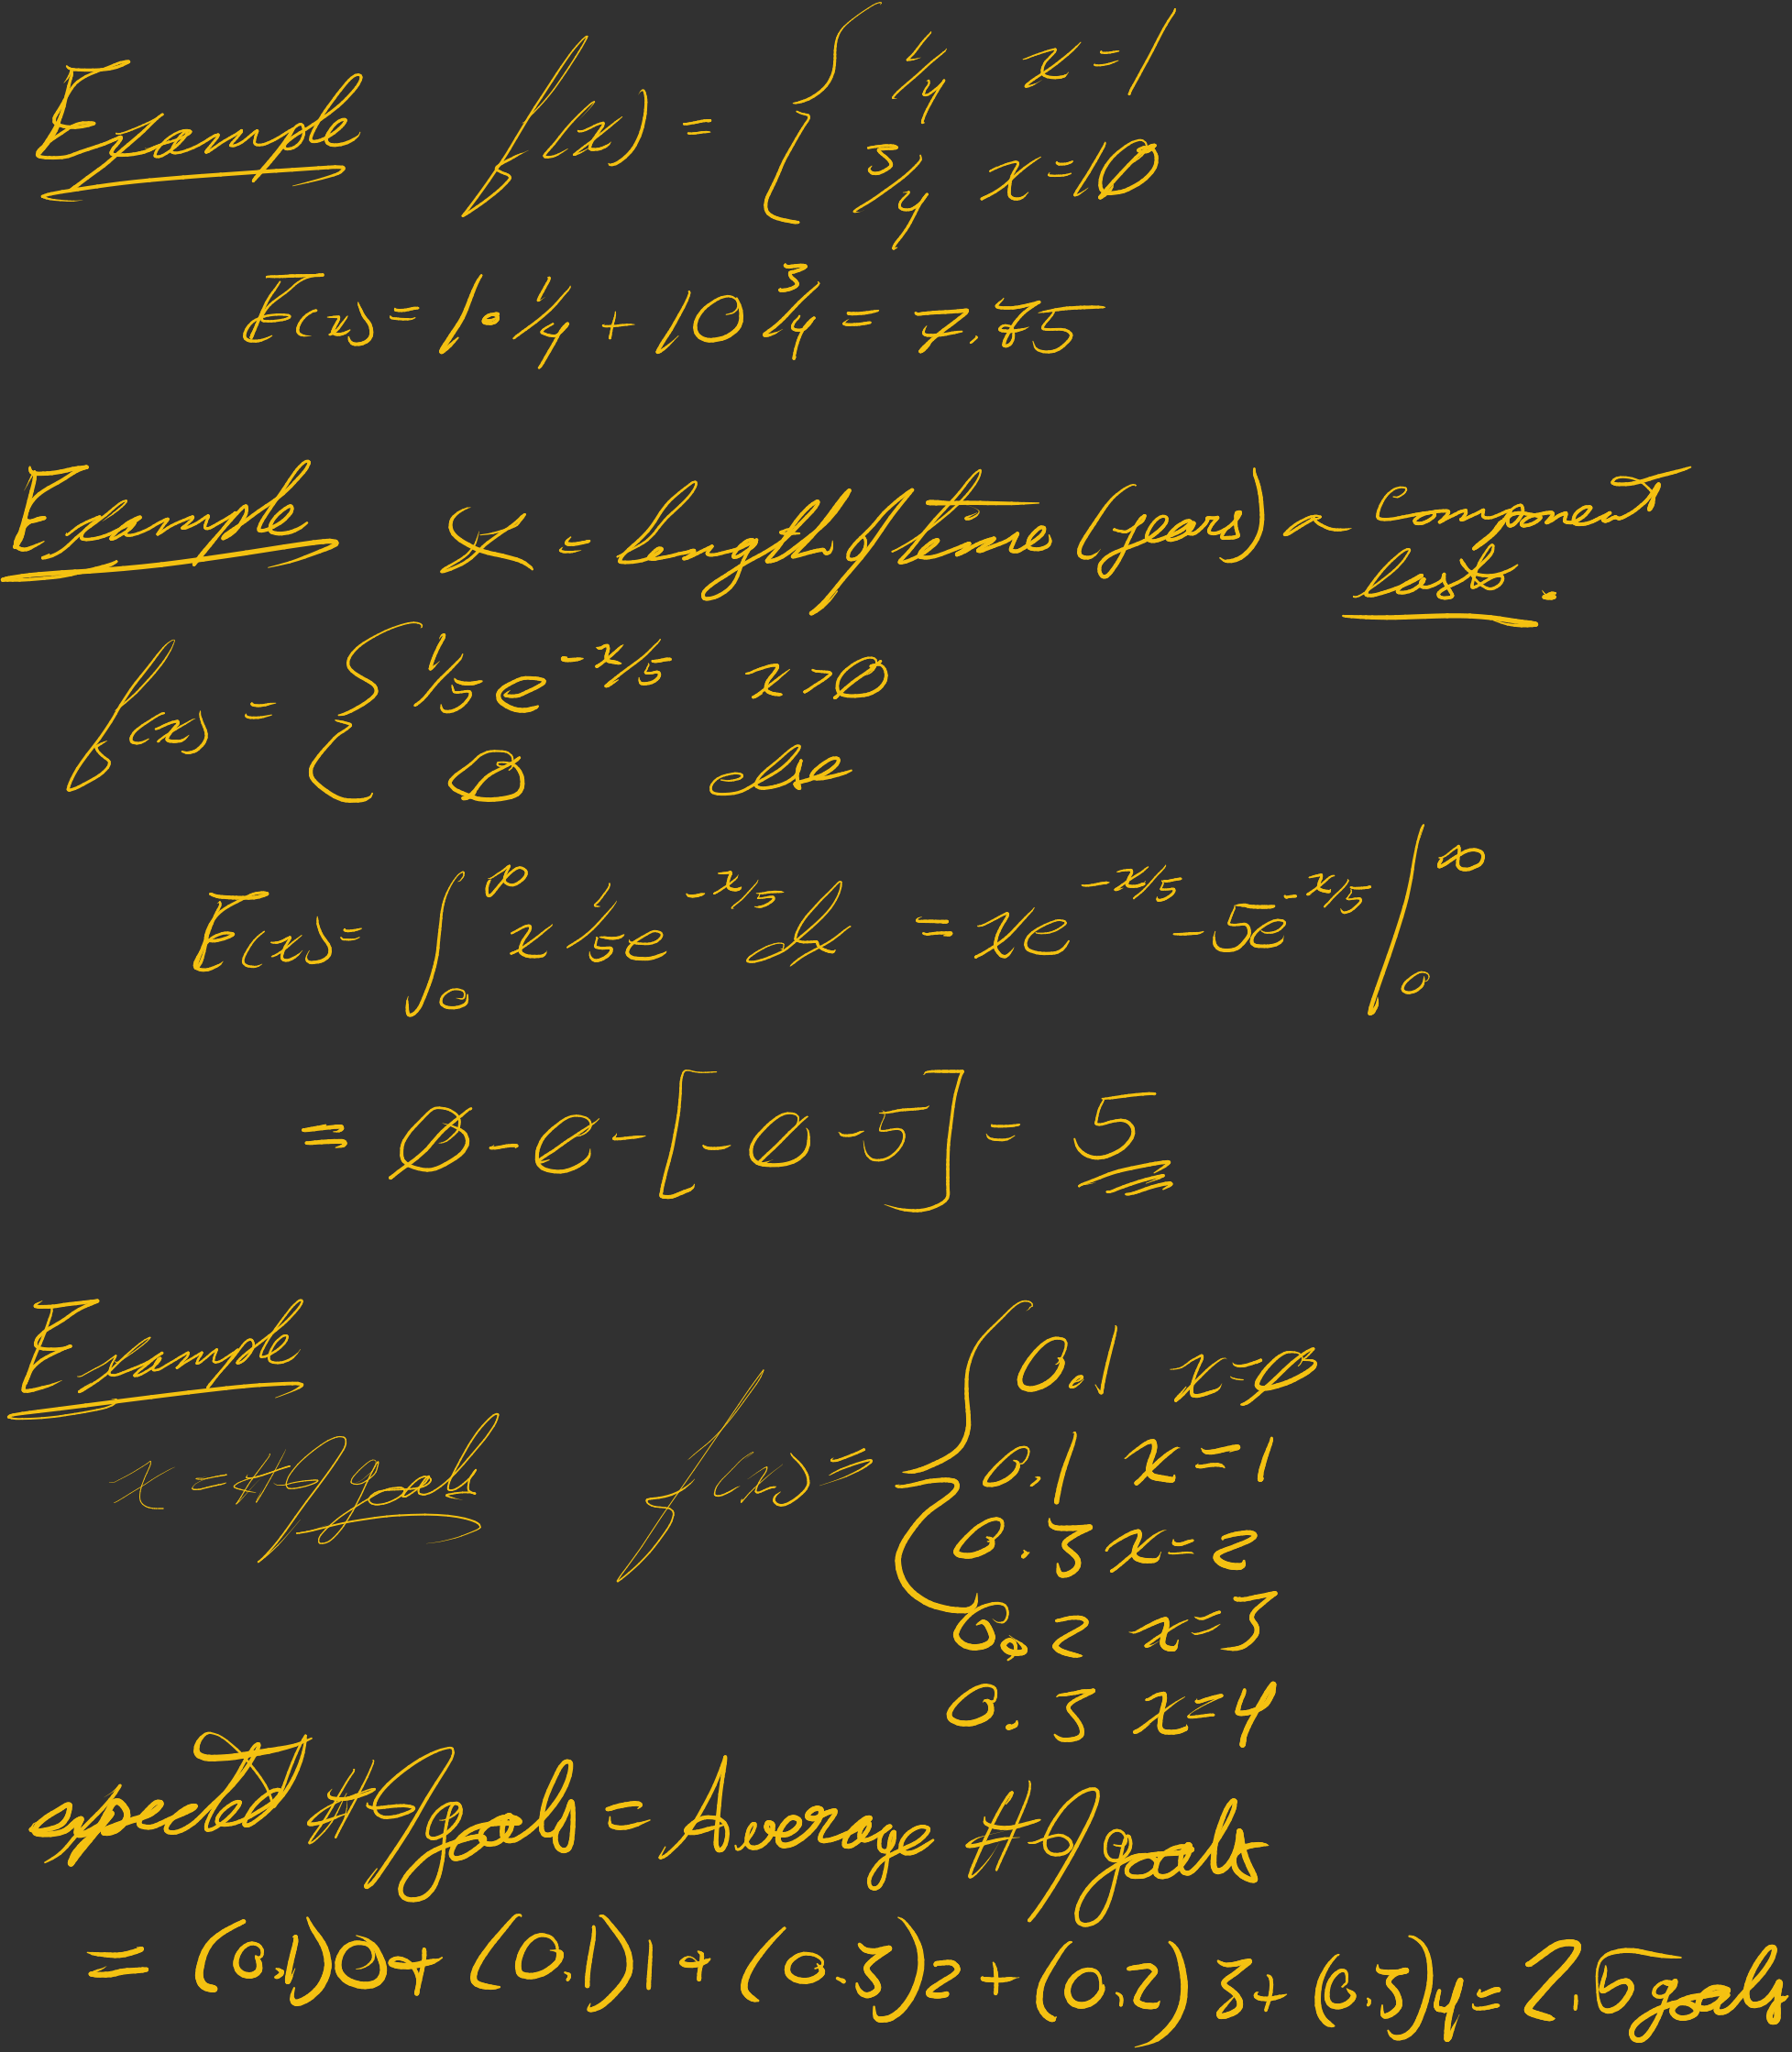 Example f(x) = { 1/4 x = 1
3/4 x = 10
E(x) = 1 • 1/4 + 10 3/4 = 7.75
Example X = length of time (years) a component
lasts.
f(x) = { 1/5 e^{-x/5} x > 0
0 else
E(x) = ∫_0^∞ x 1/5 e^{-x/5} dx = xe^{-x/5} - 5e^{-x/5} |_0^∞
= 0 - 0 - [-0 - 5] = 5
Example
x = # of goals f(x) = { 0.1 x = 0
0.1 x = 1
0.3 x = 2
0.2 x = 3
0.3 x = 4
expected # of goals = Average # of goals
= (0.1)0 + (0.1)1 + (0.3)2 + (0.2)3 + (0.3)4 = 2.5 goals